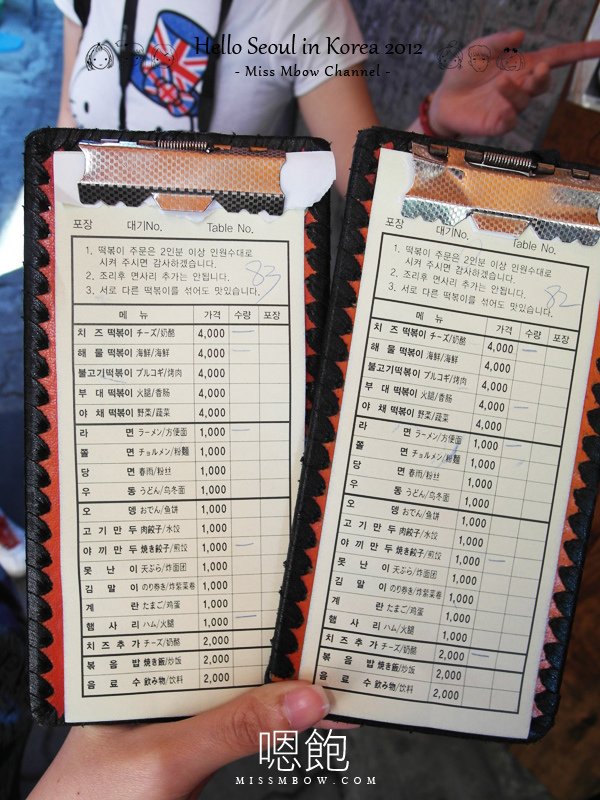 Hello Seoul in Korea 2012
- Miss Mbow Channel -
포장 대기No. Table No.
1. 떡볶이 주문은 2인분 이상 인원수대로
시켜 주시면 감사하겠습니다.
2. 조리후 면사리 추가는 안됩니다.
3. 서로 다른 떡볶이를 섞어도 맛있습니다.
83
메 뉴 가격 수량 포장
치 즈 떡볶이 チーズ/奶酪 4,000
해 물 떡볶이 海鮮/海鲜 4,000
불고기떡볶이 プルコギ/烤肉 4,000
부 대 떡볶이 火腿/香肠 4,000
야 채 떡볶이 野菜/蔬菜 4,000
라 면 ラーメン/方便面 1,000
쫄 면 チョルメン/粉麵 1,000
당 면 春雨/粉丝 1,000
우 동 うどん/乌冬面 1,000
오 뎅 おでん/鱼饼 1,000
고 기 만 두 肉餃子/水饺 1,000
야 끼 만 두 焼き餃子/煎饺 1,000
못 난 이 天ぷら/炸面团 1,000
김 말 이 のり巻き/炸紫菜卷 1,000
계 란 たまご/鸡蛋 1,000
햄 사 리 ハム/火腿 1,000
치 즈 추 가 チーズ/奶酪 2,000
볶 음 밥 焼き飯/炒饭 2,000
음 료 수 飲み物/饮料 2,000
포장 대기No. Table No.
1. 떡볶이 주문은 2인분 이상 인원수대로
시켜 주시면 감사하겠습니다.
2. 조리후 면사리 추가는 안됩니다.
3. 서로 다른 떡볶이를 섞어도 맛있습니다.
82
메 뉴 가격 수량 포장
치 즈 떡볶이 チーズ/奶酪 4,000
해 물 떡볶이 海鮮/海鲜 4,000
불고기떡볶이 プルコギ/烤肉 4,000
부 대 떡볶이 火腿/香肠 4,000
야 채 떡볶이 野菜/蔬菜 4,000
라 면 ラーメン/方便面 1,000
쫄 면 チョルメン/粉麵 1,000
당 면 春雨/粉丝 1,000
우 동 うどん/乌冬面 1,000
오 뎅 おでん/鱼饼 1,000
고 기 만 두 肉餃子/水饺 1,000
야 끼 만 두 焼き餃子/煎饺 1,000
못 난 이 天ぷら/炸面团 1,000
김 말 이 のり巻き/炸紫菜卷 1,000
계 란 たまご/鸡蛋 1,000
햄 사 리 ハム/火腿 1,000
치 즈 추 가 チーズ/奶酪 2,000
볶 음 밥 焼き飯/炒饭 2,000
음 료 수 飲み物/饮料 2,000
嗯飽
MISSMBOW.COM